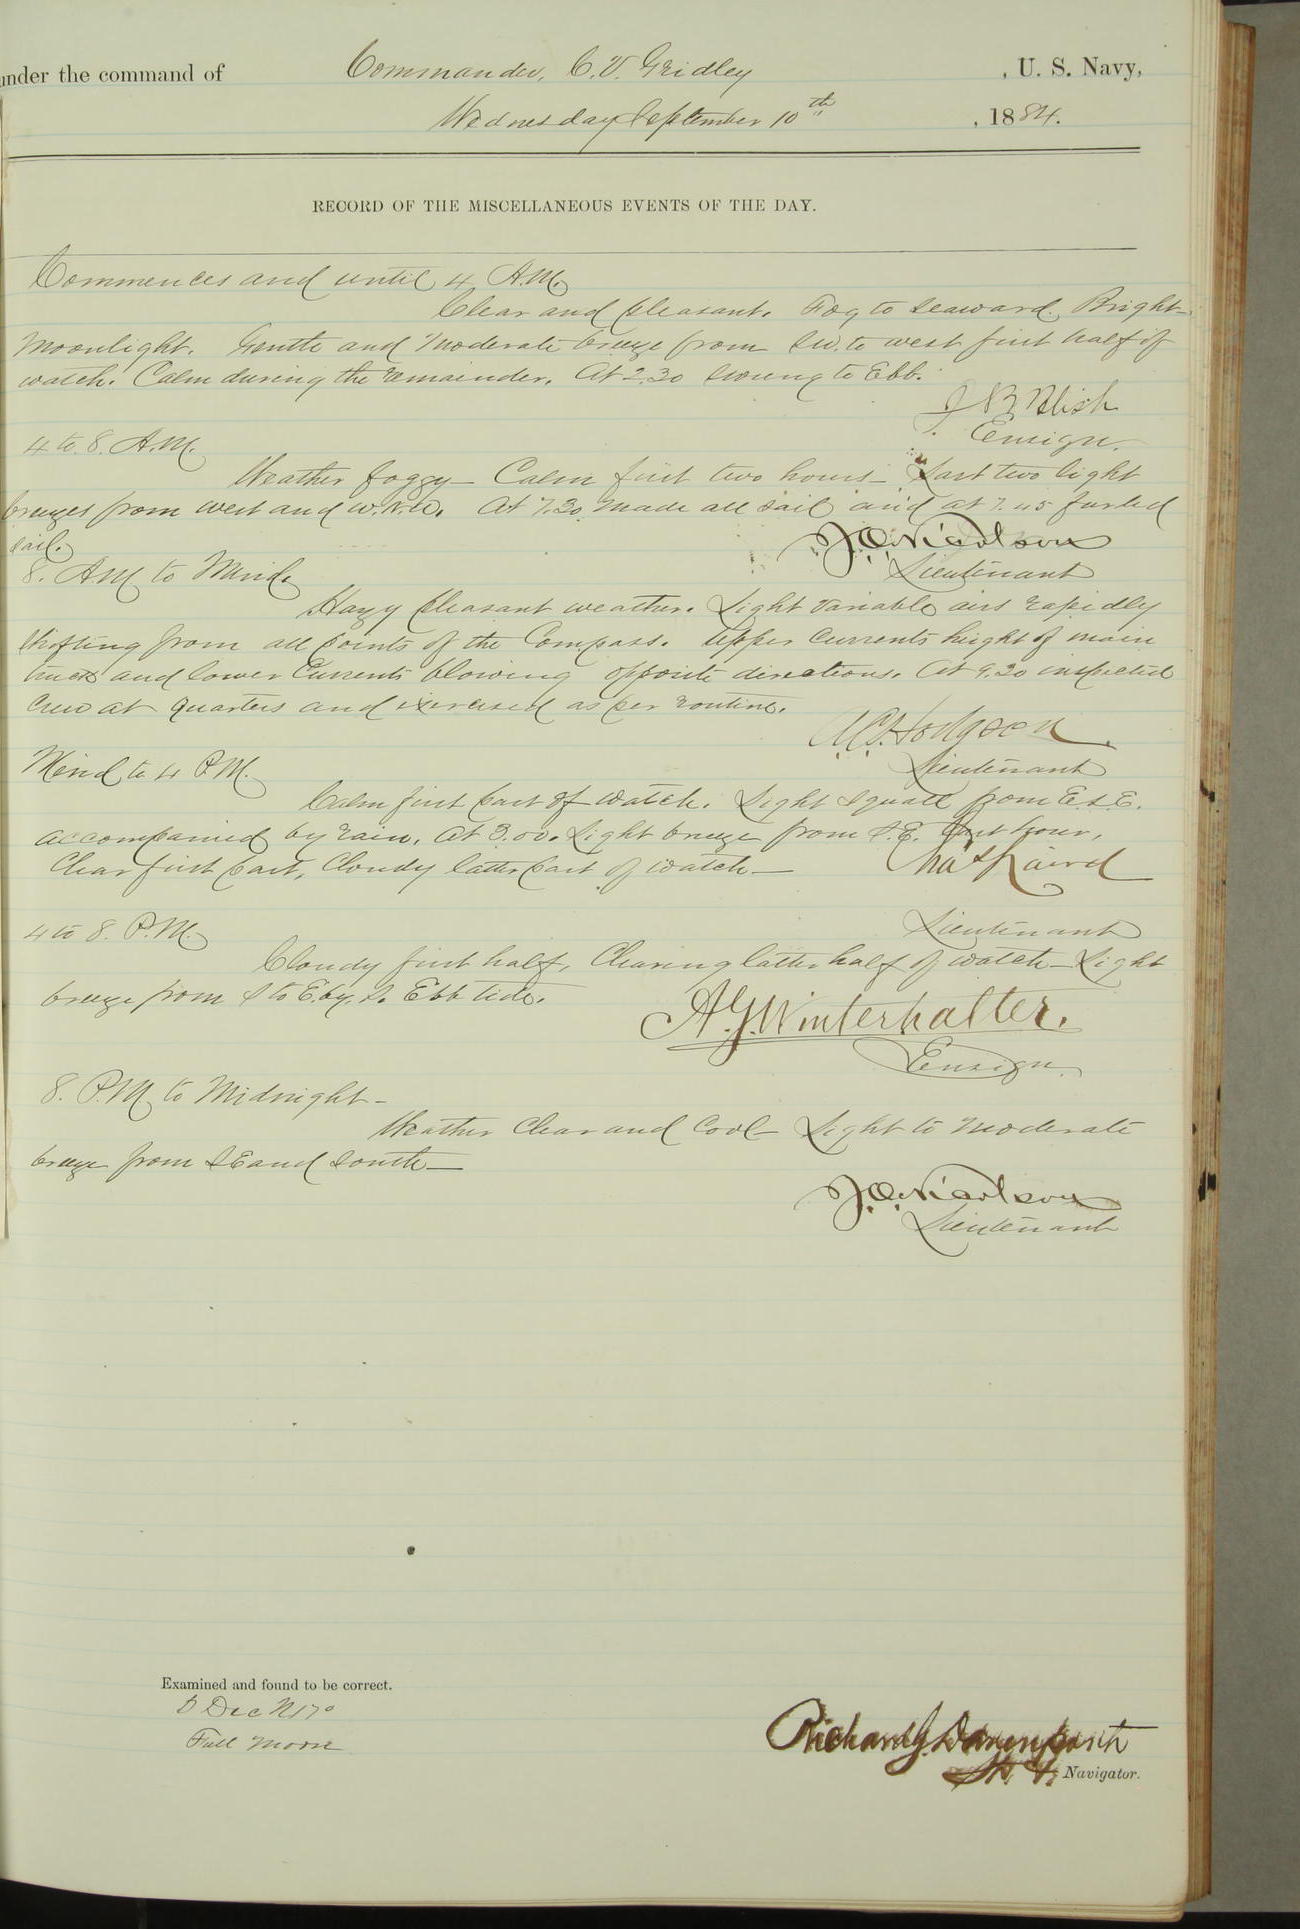 under the command of Commander, C. V. Gridley , U. S. Navy,
Wednesday September 10th , 1884.
RECORD OF THE MISCELLANEOUS EVENTS OF THE DAY.
Commences and until 4 A.M.
Clear and pleasant. Fog to seaward. Bright
Moonlight. Gentle and Moderate breeze from SW. to west first half of
watch. Calm during the remainder. At 2.30 swung to Ebb.
J B Blish
Ensign.
4 to 8. A.M.
Weather foggy – Calm first two hours – Last two light
breezes from west and W.N.W. At 7.30 made all sail and at 7.45 furled
sail.
Lieutenant
8. AM to Merid.
Hazy pleasant weather. Light variable airs rapidly
shifting from all points of the Compass. Upper currents height of main
truck and lower currents blowing opposite directions. At 9.20 inspected
crew at quarters and exercised as per routine.
A.C. Hodgson.
Lieutenant
Merid to 4 P.M.
Calm first part of watch. Light squall from E.S.E.
accompanied by rain. At 3.00. Light breeze from S.E. last hour.
Clear first part, Cloudy latter part of watch –
Chas Laird
Lieutenant
4 to 8. P.M.
Cloudy first half, Clearing latter half of watch – Light
breeze from S to E. by S. Ebb tide.
A.G. Winterhalter.
Ensign.
8. P.M. to Midnight –
Weather Clear and Cool – Light to Moderate
breeze from SE and South –
Lieutenant
Examined and found to be correct.
Dec N 17°
Full Moon
Richard G. Davenport
Navigator.